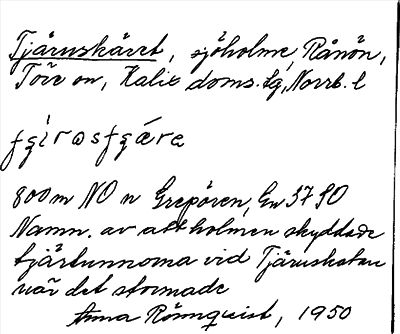 Tjäruskäret, sjöholme, Rånön,
Töre sn, Kalix doms. sg, Norrb. l
800 m NO n Grepören, Gen 37 SO
Namn. av att holmen skyddade
tjärtunnorna vid Tjäruskatan
när det stormade
Anna Rönnquist, 1950